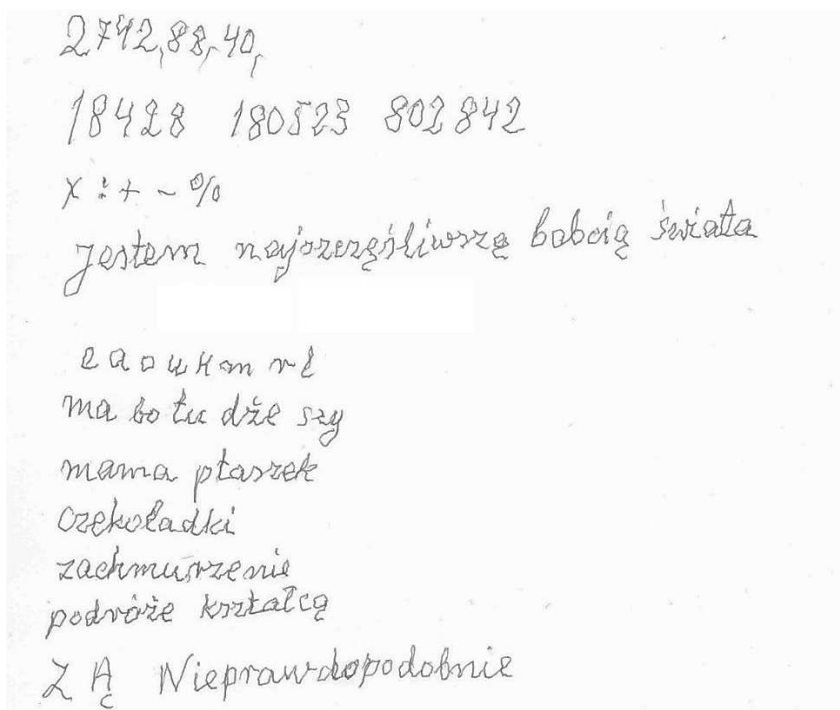 2742,88,40,
18428 180523 802842
x : + - %
jestem najszczęśliwszę babcią świata
e a o u H m r ł
ma bo tu dże szy
mama ptaszek
czękoładki
zachmurzenie
podróże kształcą
Z Ą Nieprawdopodobnie